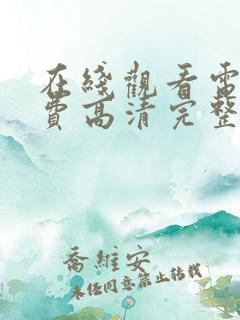 在綫觀看電
費高清完整
喬維安
未經同意禁止轉載